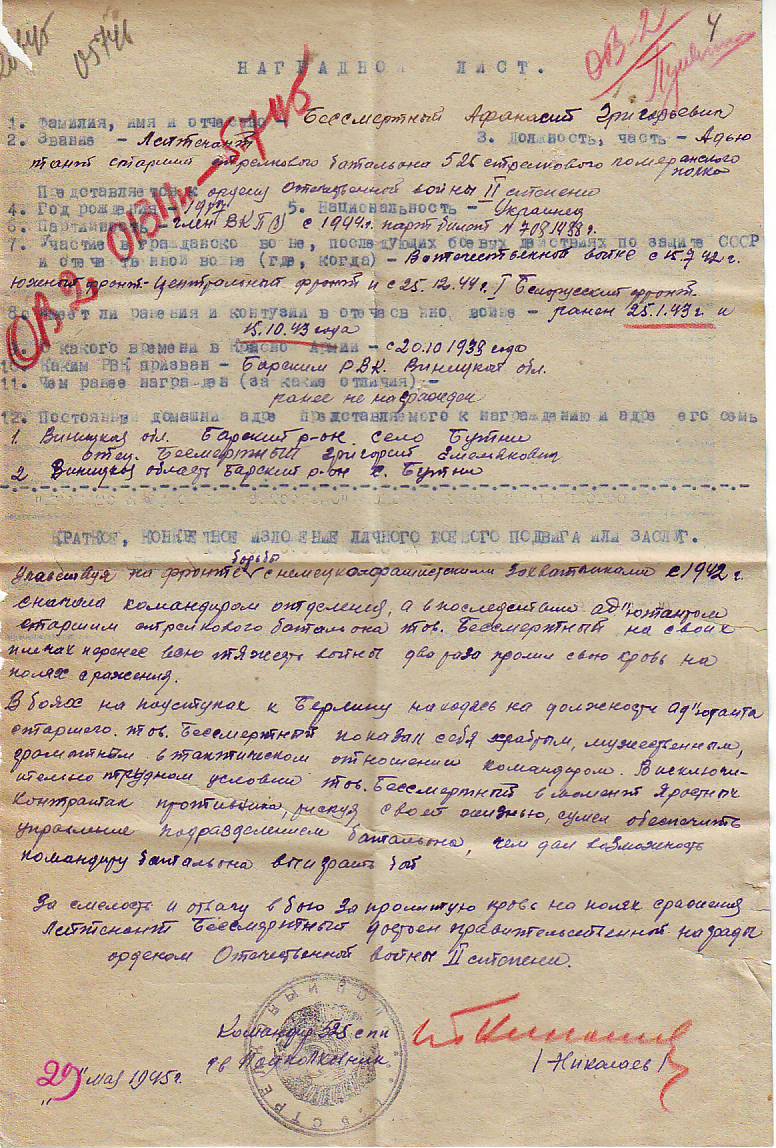 05746
ОВ-2
4
НАГРАДНОЙ ЛИСТ.
ОВ 2 ОВПИ-5746
1. Фамилия, имя и отчество - Бессмертный Афанасий Григорьевич
2. Звание - Лейтенант 3. Должность, часть - Адъю
тант старший стрелкового батальона 526 стрелкового померанского
полка
Представляется к ордену Отечественной войны II степени
4. Год рождения - 5. Национальность - Украинец
6. Партийность - член ВКП(б) с 1944г. парт билет N 7081488г.
7. Участие в гражданско во не, последующих боевых действиях по защите СССР
и отече ственной войне (где, когда) - В отечественной войне с 15.7.42 г.
южный фронт-Центральный фронт и с 25.12.44г. I Белорусский фронт
8. Имеет ли ранения и контузии в отечеств нно войне - ранен 25.1.43 г. и
15.10.43 года
9. С какого времени в Красно Армии - с 20.10 1939 года
10. Каким РВК призван - Барским РВК. Виницкой обл.
11. Чем ранее награжден (за какие отличия) -
ранее не награжден
12. Постоянный домашни адре представляемого к награждению и адре его семь
1. Виницкая обл. Барский р-он село Бутни
отец. Бессмертный Григорий Емельянович
2. Виницкая область Барский р-он с. Бутни
КРАТКОЕ, КОНКРЕТНОЕ ИЗЛОЖЕНИЕ ЛИЧНОГО БОЕВОГО ПОДВИГА ИЛИ ЗАСЛУГ.
борьбе
Участвуя на фронте с немецко-фашистскими захватчиками с 1942 г.
сначала командиром отделения, а в последствии ад"ютантом
старшим стрелкового батальона тов. Бессмертный на своих
плечах перенес всю тяжесть войны два раза пролил свою кровь на
полях сражения.
В боях на подступах к Берлину находясь на должности ад"ютанта
старшего. тов. Бессмертный показал себя храбрым, мужественным,
грамотным в тактическом отношении командиром. В исключи-
ительно трудном условии тов. Бессмертный в момент яростных
контратак противника, рискуя своей жизнью, сумел обеспечить
управление подразделением батальона, чем дал возможность
командиру батальона выиграть бой
За смелость и отвагу в бою за пролитую кровь на полях сражения
Лейтенант Бессмертный достоен правительственной награды
орденом Отечественной войны II степени.
Командир 525 спп
гв Подполковник
/ Николаев /
"29" мая 1945г.